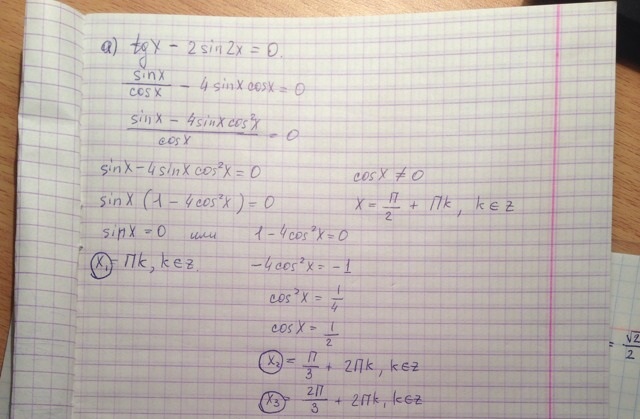 а) tgx - 2sin2x = 0.
sinx/cosx - 4sinxcosx = 0
(sinx - 4sinxcos²x)/cosx = 0
sinx - 4sinxcos²x = 0
cosx ≠ 0
sinx (1 - 4cos²x) = 0
x = π/2 + πk, k∈z
sinx = 0 или 1 - 4cos²x = 0
x₁ = πk, k∈z.
-4cos²x = -1
cos²x = 1/4
cosx = 1/2
x₂ = π/3 + 2πk, k∈z
x₃ = 2π/3 + 2πk, k∈z
= √2/2